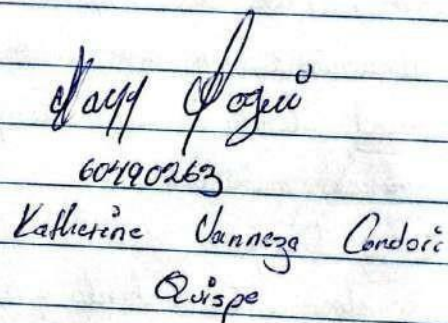 60490263
Katherine Vanneza Condori
Quispe